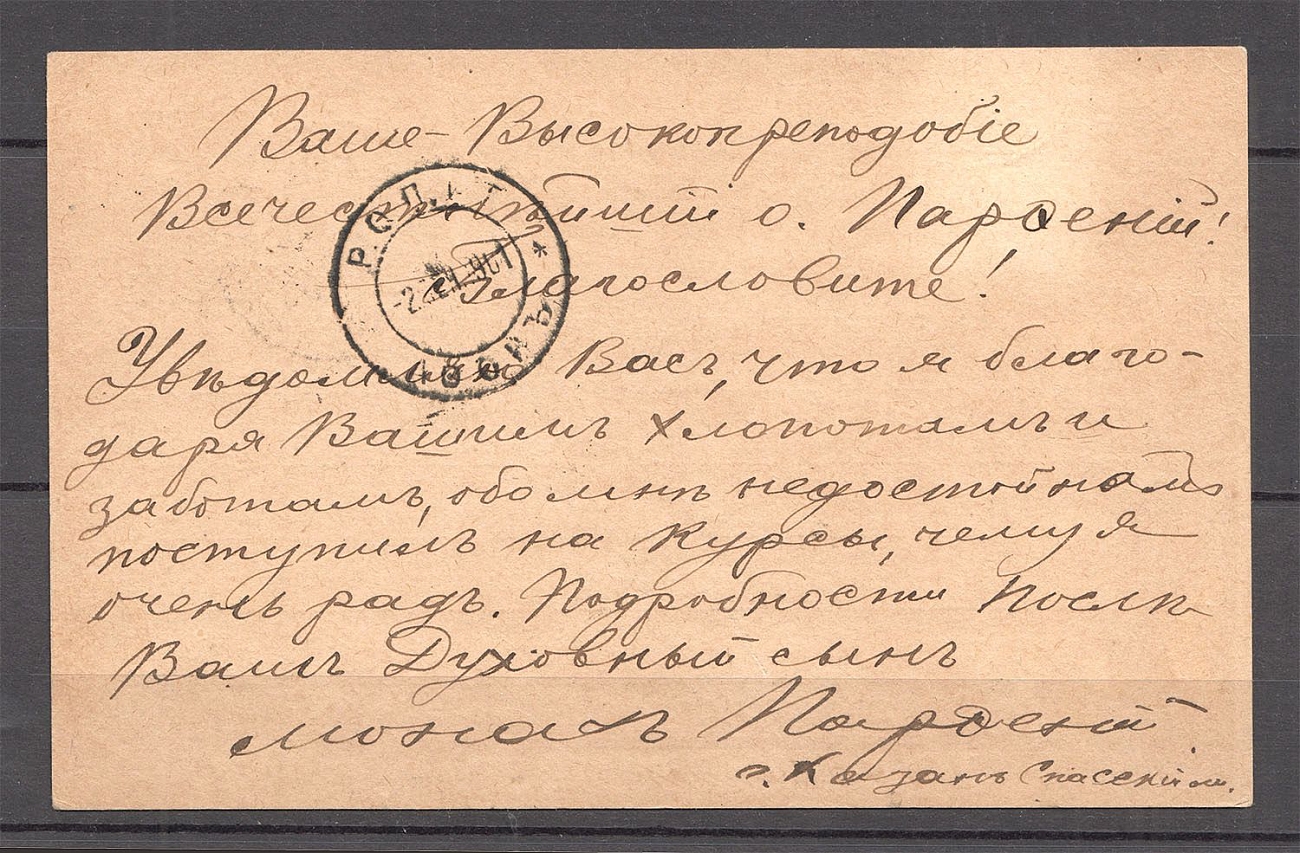 Ваше - Высокопреподобіе
Всечестнѣйшій о. Парѳеній!
Благословите!
Увѣдомляю Васъ, что я благо-
даря Вашимъ хлопотамъ и
заботамъ, обо мнѣ недостойномъ
поступилъ на курсы, чему я
очень радъ. Подробности послѣ
Вашъ Духовный сынъ
монахъ Парѳеній
г. Казань Спасскій м.
Р.О.П.И.Т. *